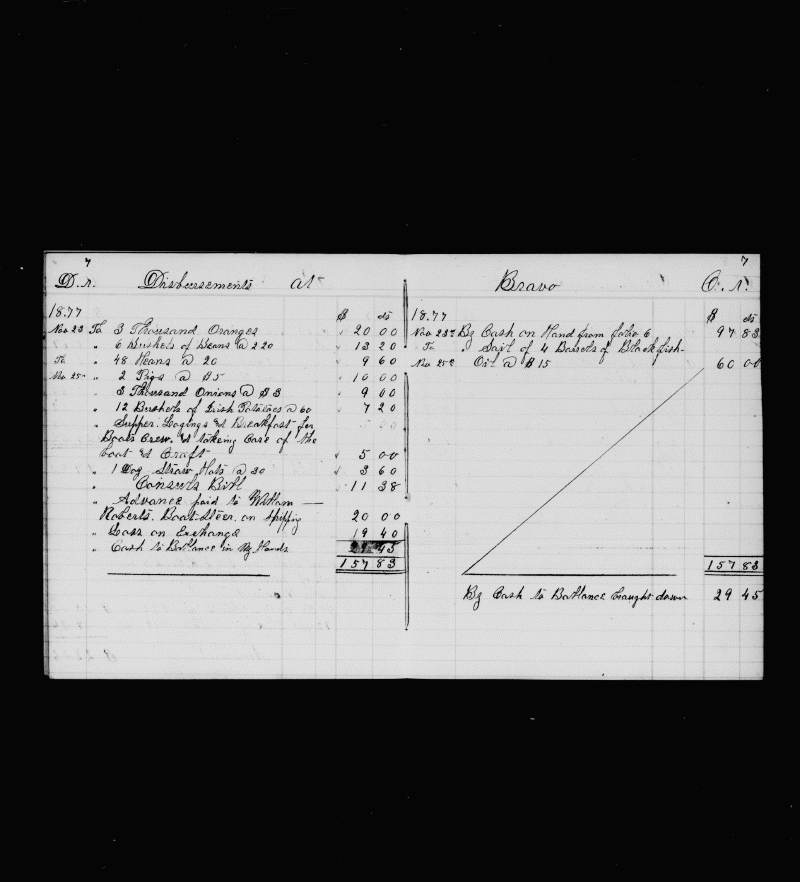 7
D.r. Disbursements at
18.77 $ cts
Nov 23 To 3 Thousand Oranges 20 00
" 6 Bushels of Beans a 2 20 13 20
To " 48 Heans a 20 9 60
Nov 25th " 2 Pigs a $5 10 00
" 3 Thousand Onions a $3 9 00
" 12 Bushels of Irish Potatoes a 60 7 20
" Supper. Logings & Breakfast for
Boats Crew. & takeing Care of the
boat & Craft 5 00
" 1 Doz Straw Hats a 30 3 60
" Consuls Bill 11 38
" Advance paid to William
Roberts. Boat-Steer. on Shipping 20 00
" Loss on Exchange 19 40
" Cash to Ballance in My Hands 29 45
157 83
7
Bravo C.r.
18.77 $ cts
Nov 23rd By Cash on Hand from folio 6 97 83
To " Sail of 4 Barrels of Blackfish-
Nov 25th Oil a $15 60 00
157 83
By Cash to Ballance braught down 29 45